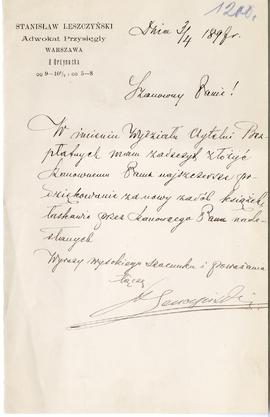 STANISŁAW LESZCZYŃSKI
Adwokat Przysięgły
WARSZAWA
Ordynacka
Dnia 3/4 1898 r.
Szanowny Panie!
W imieniu Wydziału Czytelni Bez-
płatnych mam zaszczyt złożyć
Szanownemu Panu najszczersze po-
dziękowanie za nowy zasób książek
łaskawie przez Szanownego Pana nade-
słanych
Wyrazy wysokiego szacunku i poważania
łączę